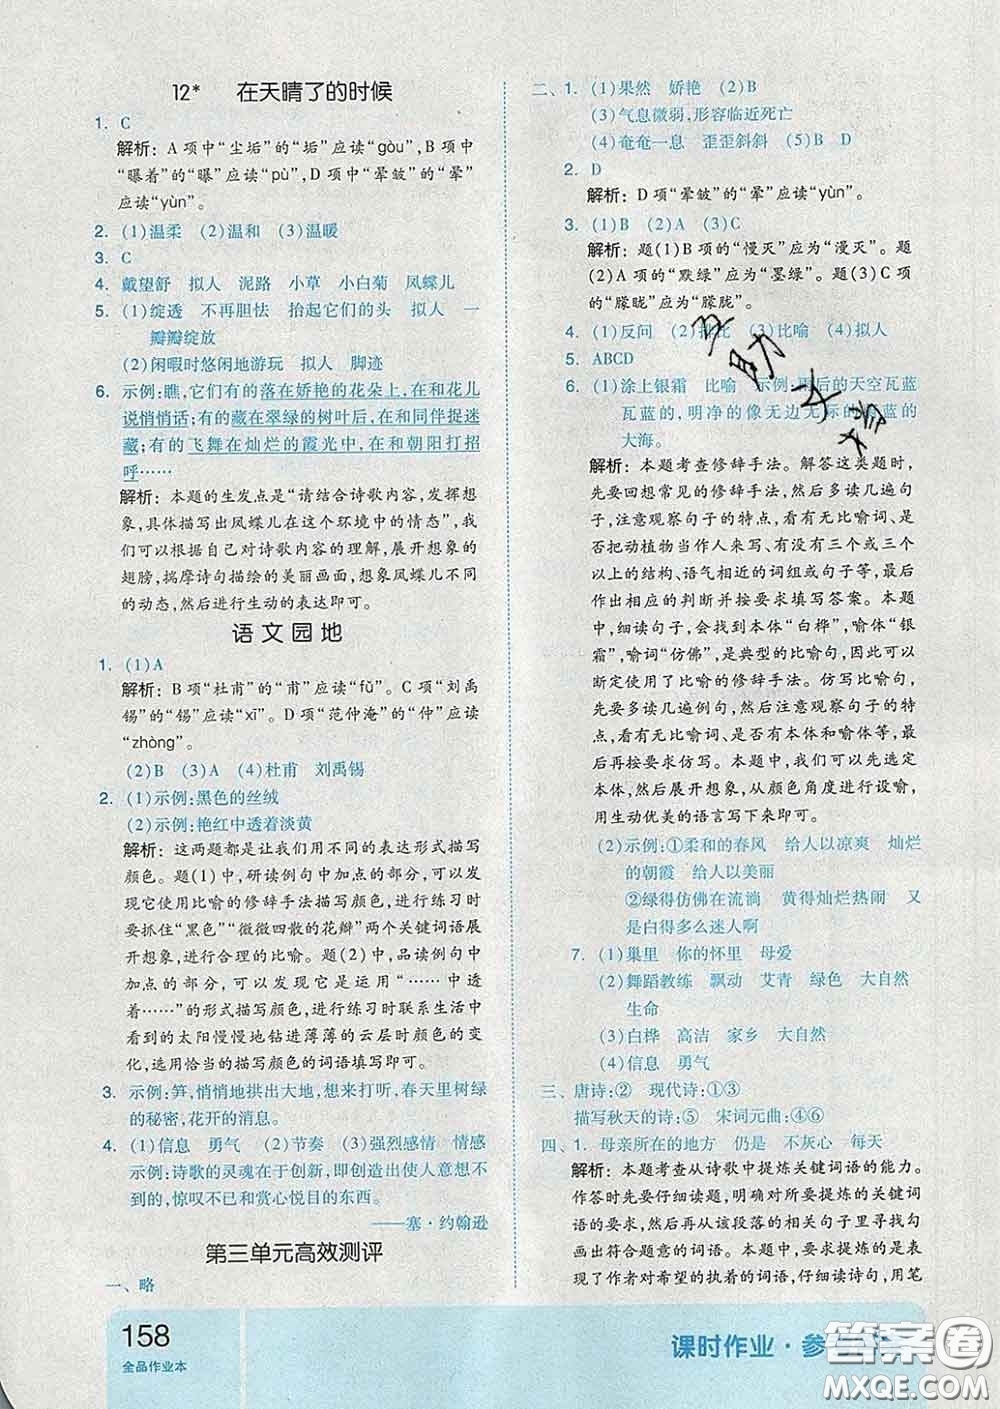 12* 在天晴了的时候
1. C
解析：A项中“尘垢”的“垢”应读“gòu”，B项
中“曝着”的“曝”应读“pù”，D项中“晕皴”的“晕”
应读“yùn”。
2. (1)温柔 (2)温和 (3)温暖
3. C
4. 戴望舒 拟人 泥路 小草 小白菊 凤蝶儿
5. (1)绽透 不再胆怯 抬起它们的头 拟人 一
瓣瓣绽放
(2)闲暇时悠闲地游玩 拟人 脚迹
6. 示例：瞧，它们有的落在娇艳的花朵上，在和花儿
说悄悄话；有的藏在翠绿的树叶后，在和同伴捉迷
藏；有的飞舞在灿烂的霞光中，在和朝阳打招
呼……
解析：本题的生发点是“请结合诗歌内容，发挥想
象，具体描写出凤蝶儿在这个环境中的情态”，我
们可以根据自己对诗歌内容的理解，展开想象的
翅膀，揣摩诗句描绘的美丽画面，想象凤蝶儿不同
的动态，然后进行生动的表达即可。
语文园地
1. (1)A
解析：B项“杜甫”的“甫”应读“fǔ”。C项“刘禹
锡”的“锡”应读“xī”。D项“范仲淹”的“仲”应读
“zhòng”。
(2)B (3)A (4)杜甫 刘禹锡
2. (1)示例：黑色的丝绒
(2)示例：艳红中透着淡黄
解析：这两题都是让我们用不同的表达形式描写
颜色。题(1)中，研读例句中加点的部分，可以发
现它是用比喻的修辞手法描写颜色，进行练习时
要抓住“黑色”“微微四散的花瓣”两个关键词语展
开想象，进行合理的比喻。题(2)中，品读例句中
加点的部分，可以发现它是运用“……中透
着……”的形式描写颜色，进行练习时联系生活中
看到的太阳慢慢地钻进薄薄的云层时颜色的变
化，选用恰当的描写颜色的词语填写即可。
3. 示例：笋，悄悄地拱出大地，想来打听，春天里树绿
的秘密，花开的消息。
4. (1)信息 勇气 (2)节奏 (3)强烈感情 情感
示例：诗歌的灵魂在于创新，即创造出使人意想不
到的，惊叹不已和赏心悦目的东西。
——塞·约翰逊
第三单元高效测评
一、略
二、1. (1)果然 娇艳 (2)B
(3)气息微弱，形容临近死亡
(4)奄奄一息 歪歪斜斜 (5)B D
2. D
解析：D项“晕皴”的“晕”应读“yùn”。
3. (1)B (2)A (3)C
解析：题(1)B项的“慢灭”应为“漫灭”。题
(2)A项的“默绿”应为“墨绿”。题(3)C项
的“朦昽”应为“朦胧”。
4. (1)反问 (2)排比 (3)比喻 (4)拟人
5. ABCD
6. (1)涂上银霜 比喻 示例：雨后的天空瓦蓝
瓦蓝的，明净的像无边无际的蔚蓝的
大海。
解析：本题考查修辞手法。解答这类题时，
先要回想常见的修辞手法，然后多读几遍句
子，注意观察句子的特点，看有无比喻词、是
否把动植物当作人来写、有无三个或三个
以上的结构、语气相近的词组或句子等，最后
作出相应的判断并按要求填写答案。本题
中，细读句子，会找到本体“白桦”，喻体“银
霜”，喻词“仿佛”，是典型的比喻句，可以由此
断定使用了比喻的修辞手法。仿写比喻句，
先要多读几遍例句，然后注意观察句子的特
点，看有无比喻词、是否有本体和喻体等，最
后再按要求仿写。本题中，我们可以先选定
本体，然后展开想象，从颜色角度进行设喻，
用生动优美的语言写下来即可。
(2)示例：①柔和的春风 给人以凉爽 灿烂
的朝霞 给人以美丽
②绿得仿佛在流淌 黄得灿烂热闹 又
是白得多么迷人啊
7. (1)巢里 你的怀里 母爱
(2)舞蹈教练 飘动 艾青 绿色 大自然
生命
(3)白桦 高洁 家乡 大自然
(4)信息 勇气
三、唐诗：② 现代诗：①③
描写秋天的诗：⑤ 宋词元曲：④⑥
四、1. 母亲所在的地方 仍是 不灰心 每天
解析：本题考查从诗歌中提炼关键词语的能力。
作答时先要仔细读题，明确对所要提炼的关键词
语的要求，然后从该段落的相关句子里寻找并勾
画出符合题意的词语。本题中，要求提炼的是表
现了作者对希望的执着的词语，仔细读诗句，用笔
互助文档
158
全品作业本
课时作业·参
答案圈
MXQE.COM